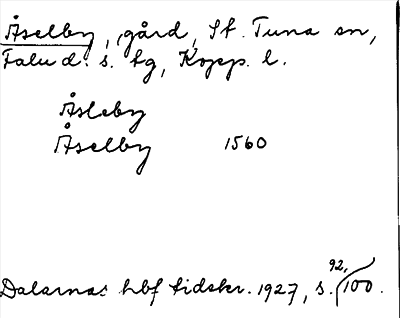 Åselby, gård, St. Tuna sn,
Falu d. s. tg, Kopp. l.
Åsleby
Åselby 1560
Dalarnas hbf tidskr. 1927, s. 92, 100.